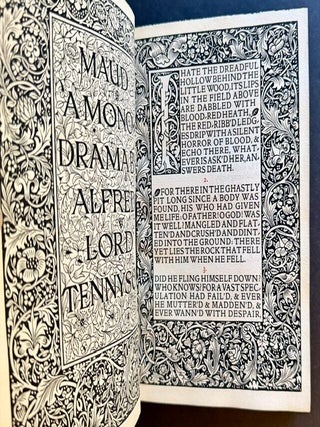 MAUD
A MONO
DRAMA
ALFRE
LORD
TENNYS
I HATE THE DREADFUL
HOLLOW BEHIND THE
LITTLE WOOD, ITS LIPS
IN THE FIELD ABOVE
ARE DABBLED WITH
BLOOD-RED HEATH,
THE RED-RIBB'D LEDG-
ES DRIP WITH A SILENT
HORROR OF BLOOD, &
ECHO THERE, WHAT-
EVER IS ASK'D HER, AN-
SWERS DEATH.
2
FOR THERE IN THE GHASTLY
PIT LONG SINCE A BODY WAS
FOUND, HIS WHO HAD GIVEN
ME LIFE. O FATHER! O GOD! WAS
IT WELL? MANGLED AND FLAT-
TEN'D AND CRUSH'D AND DINT-
ED INTO THE GROUND: THERE
YET LIES THE ROCK THAT FELL
WITH HIM WHEN HE FELL.
3
DID HE FLING HIMSELF DOWN?
WHO KNOWS? FOR A VAST SPEC-
ULATION HAD FAIL'D, & EVER
HE MUTTER'D & MADDEN'D, &
EVER WANN'D WITH DESPAIR,